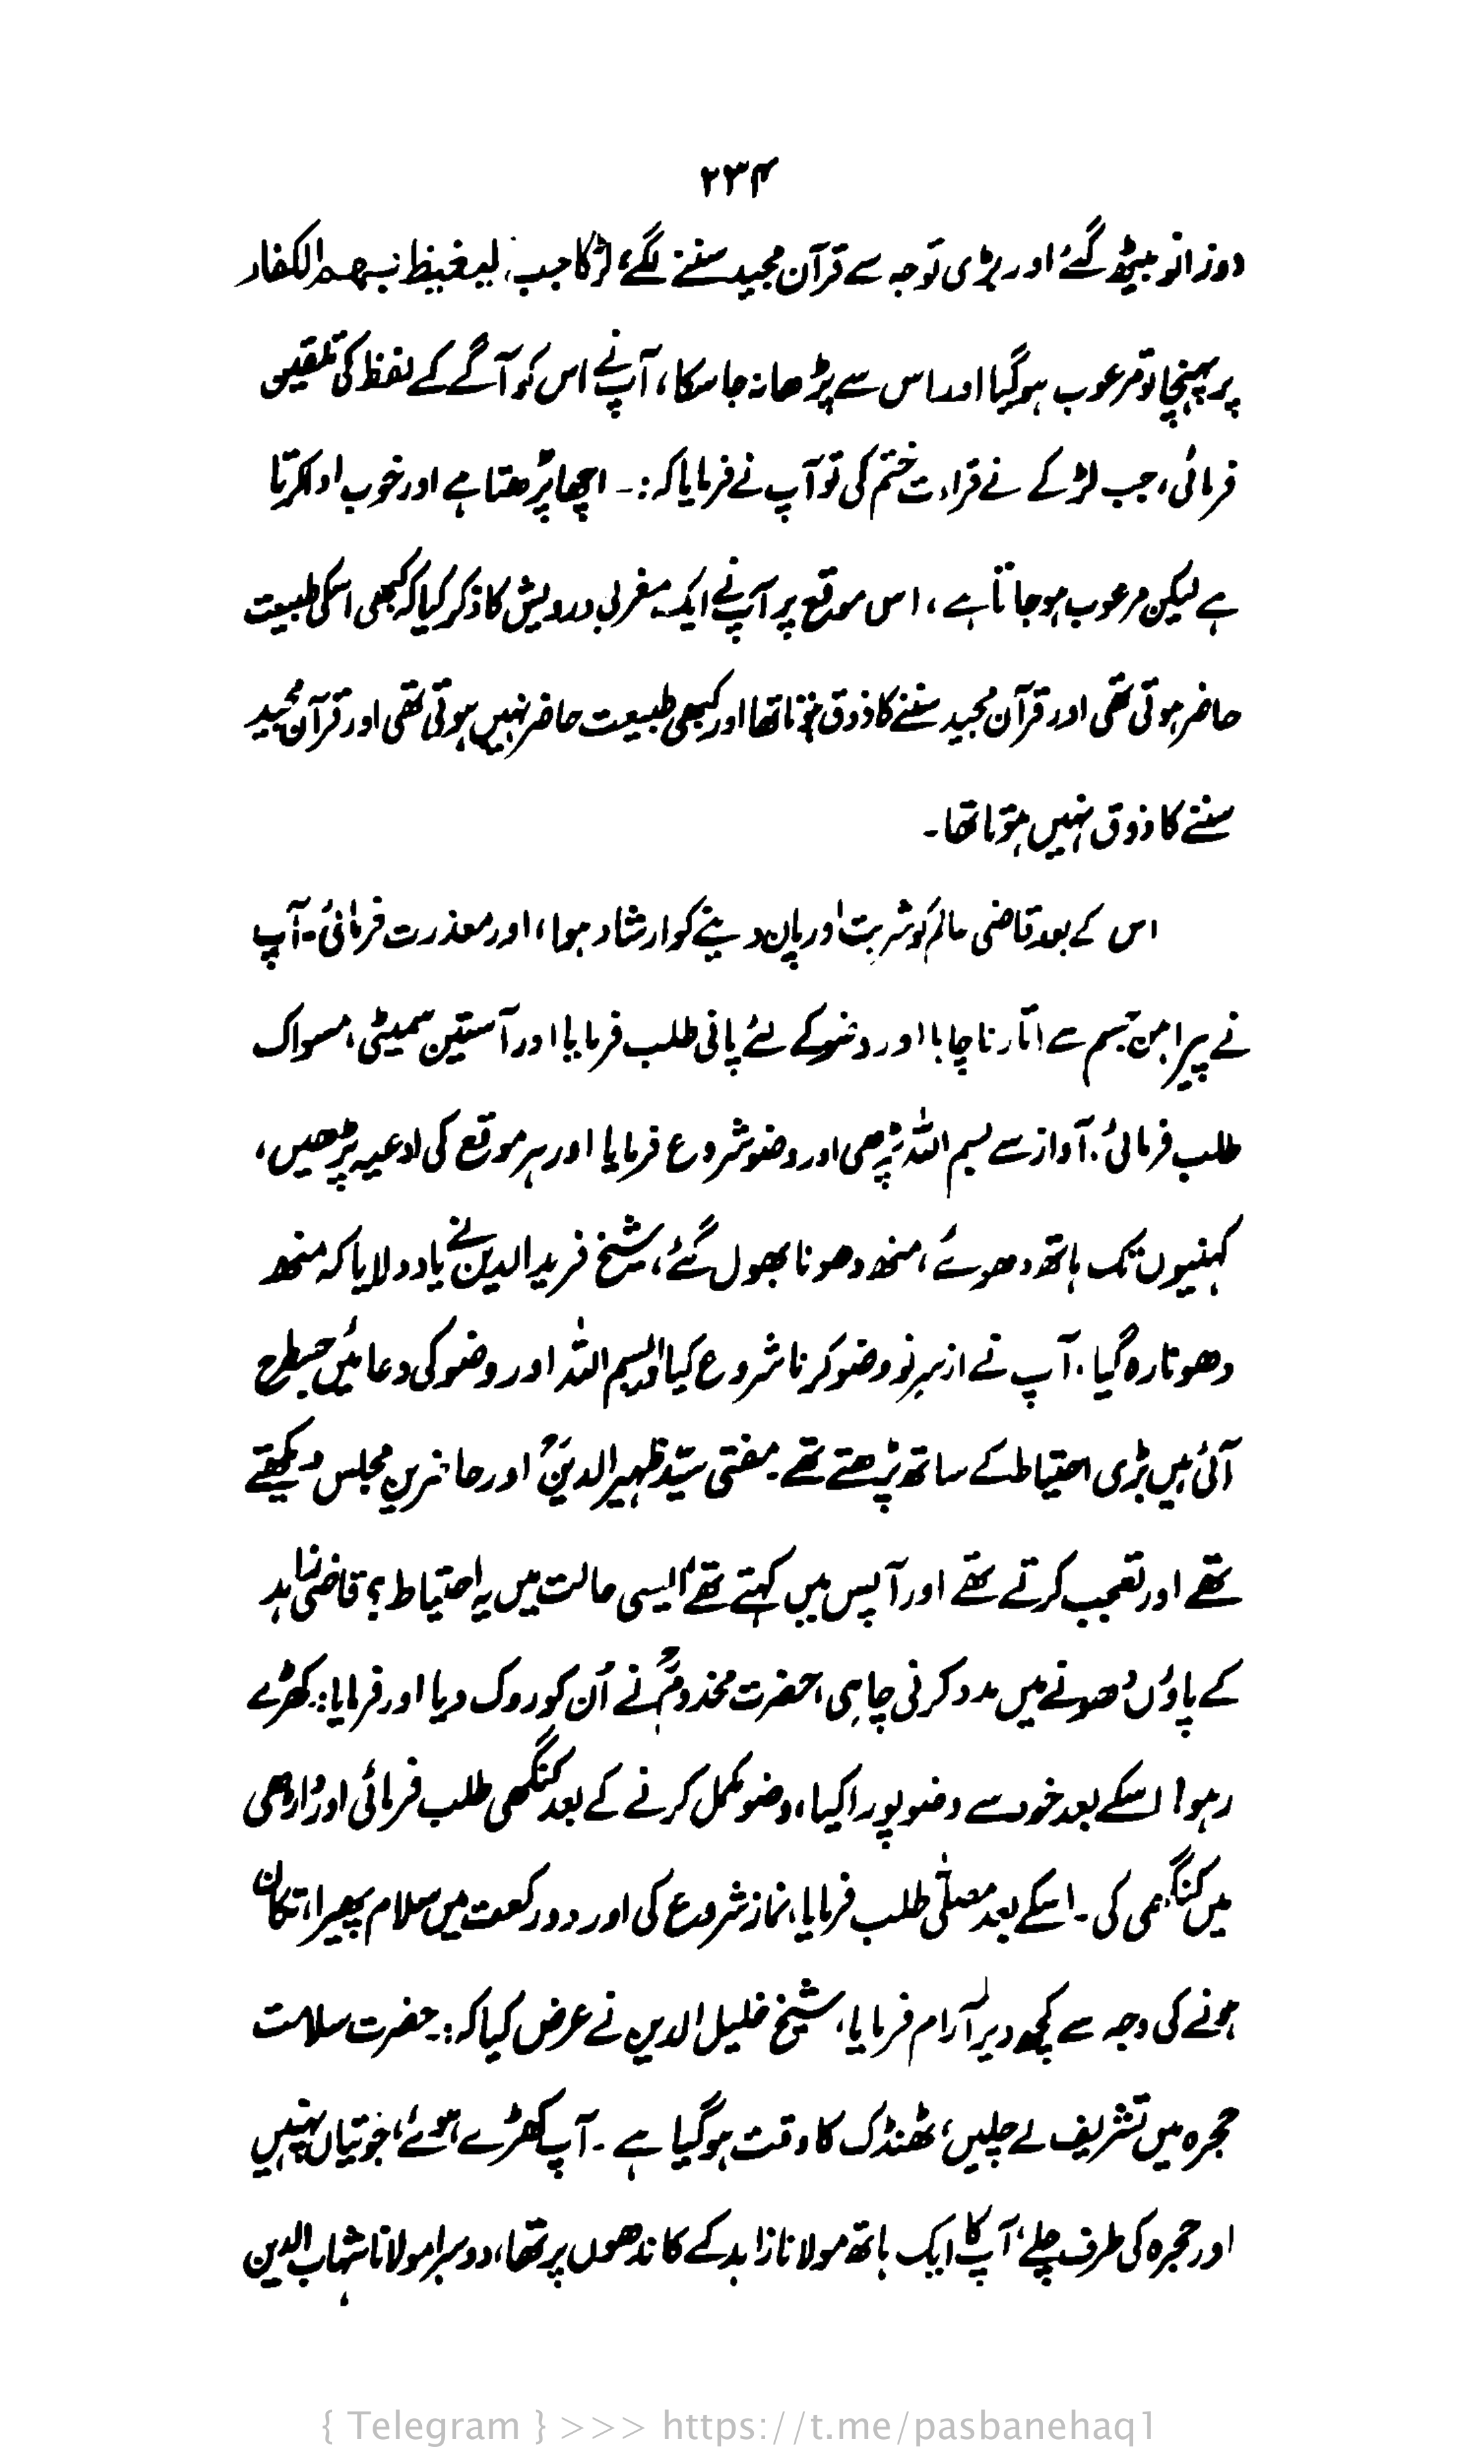 ۲۳۴
دوزانو بیٹھ گئے اور بڑی توجہ سے قرآن مجید سننے لگے، لڑکا جب، لیغیظ بہم الکفار
پر پہنچا تو مرعوب ہوگیا اور اس سے پڑھا نہ جاسکا، آپ نے اس کو آگے کے لفظ کی تلقین
فرمائی، جب لڑکے نے قراءت ختم کی تو آپ نے فرمایا کہ:۔ اچھا پڑھتا ہے اور خوب ادا کرتا
ہے لیکن مرعوب ہوجاتا ہے، اس موقع پر آپ نے ایک مغربی درویش کا ذکر کیا کہ کبھی اسکی طبیعت
حاضر ہوتی تھی اور قرآن مجید سننے کا ذوق ہوتا تھا اور کبھی طبیعت حاضر نہیں ہوتی تھی اور قرآن مجید
سننے کا ذوق نہیں ہوتا تھا۔
اس کے بعد قاضی عالم کو شربت اور پان دینے کو ارشاد ہوا، اور معذرت فرمائی۔ آپ
نے پیراہن جسم سے اتارنا چاہا اور وضو کے لئے پانی طلب فرمایا اور آستین سمیٹی، مسواک
طلب فرمائی. آواز سے بسم اللہ پڑھی اور وضو شروع فرمایا اور ہر موقع کی ادعیہ پڑھیں،
کہنیوں تک ہاتھ دھوئے، منھ دھونا بھول گئے، شیخ فرید الدین نے یاد دلایا کہ منھ
دھونا رہ گیا. آپ نے از سرِ نو وضو کرنا شروع کیا اور بسم اللہ اور وضو کی دعائیں جسطرح
آئی ہیں بڑی احتیاط کے ساتھ پڑھتے تھے۔ مفتی سیّد ظہیر الدینؒ اور حاضرین مجلس دیکھتے
تھے اور تعجب کرتے تھے اور آپس میں کہتے تھے ایسی حالت میں یہ احتیاط؟ قاضی زاہد
کے پاؤں دھونے میں مدد کرنی چاہی، حضرت مخدومؒ نے اُن کو روک دیا اور فرمایا: کھڑے
رہو! اسکے بعد خود سے وضو پورا کیا، وضو مکمل کرنے کے بعد کنگھی طلب فرمائی اور داڑھی
میں کنگھی کی۔ اسکے بعد مصلّٰی طلب فرمایا، نماز شروع کی اور دو رکعت میں سلام پھیرا، تکان
ہونے کی وجہ سے کچھ دیر آرام فرمایا، شیخ خلیل الدین نے عرض کیا کہ:۔ حضرت سلامت
حجرہ میں تشریف لے چلیں، ٹھنڈک کا وقت ہوگیا ہے۔ آپ کھڑے ہوئے، جوتیاں پہنیں
اور حجرہ کی طرف چلے، آپ کا ایک ہاتھ مولانا زاہد کے کاندھوں پر تھا، دوسرا مولانا شہاب الدین
{ Telegram } >>> https://t.me/pasbanehaq1